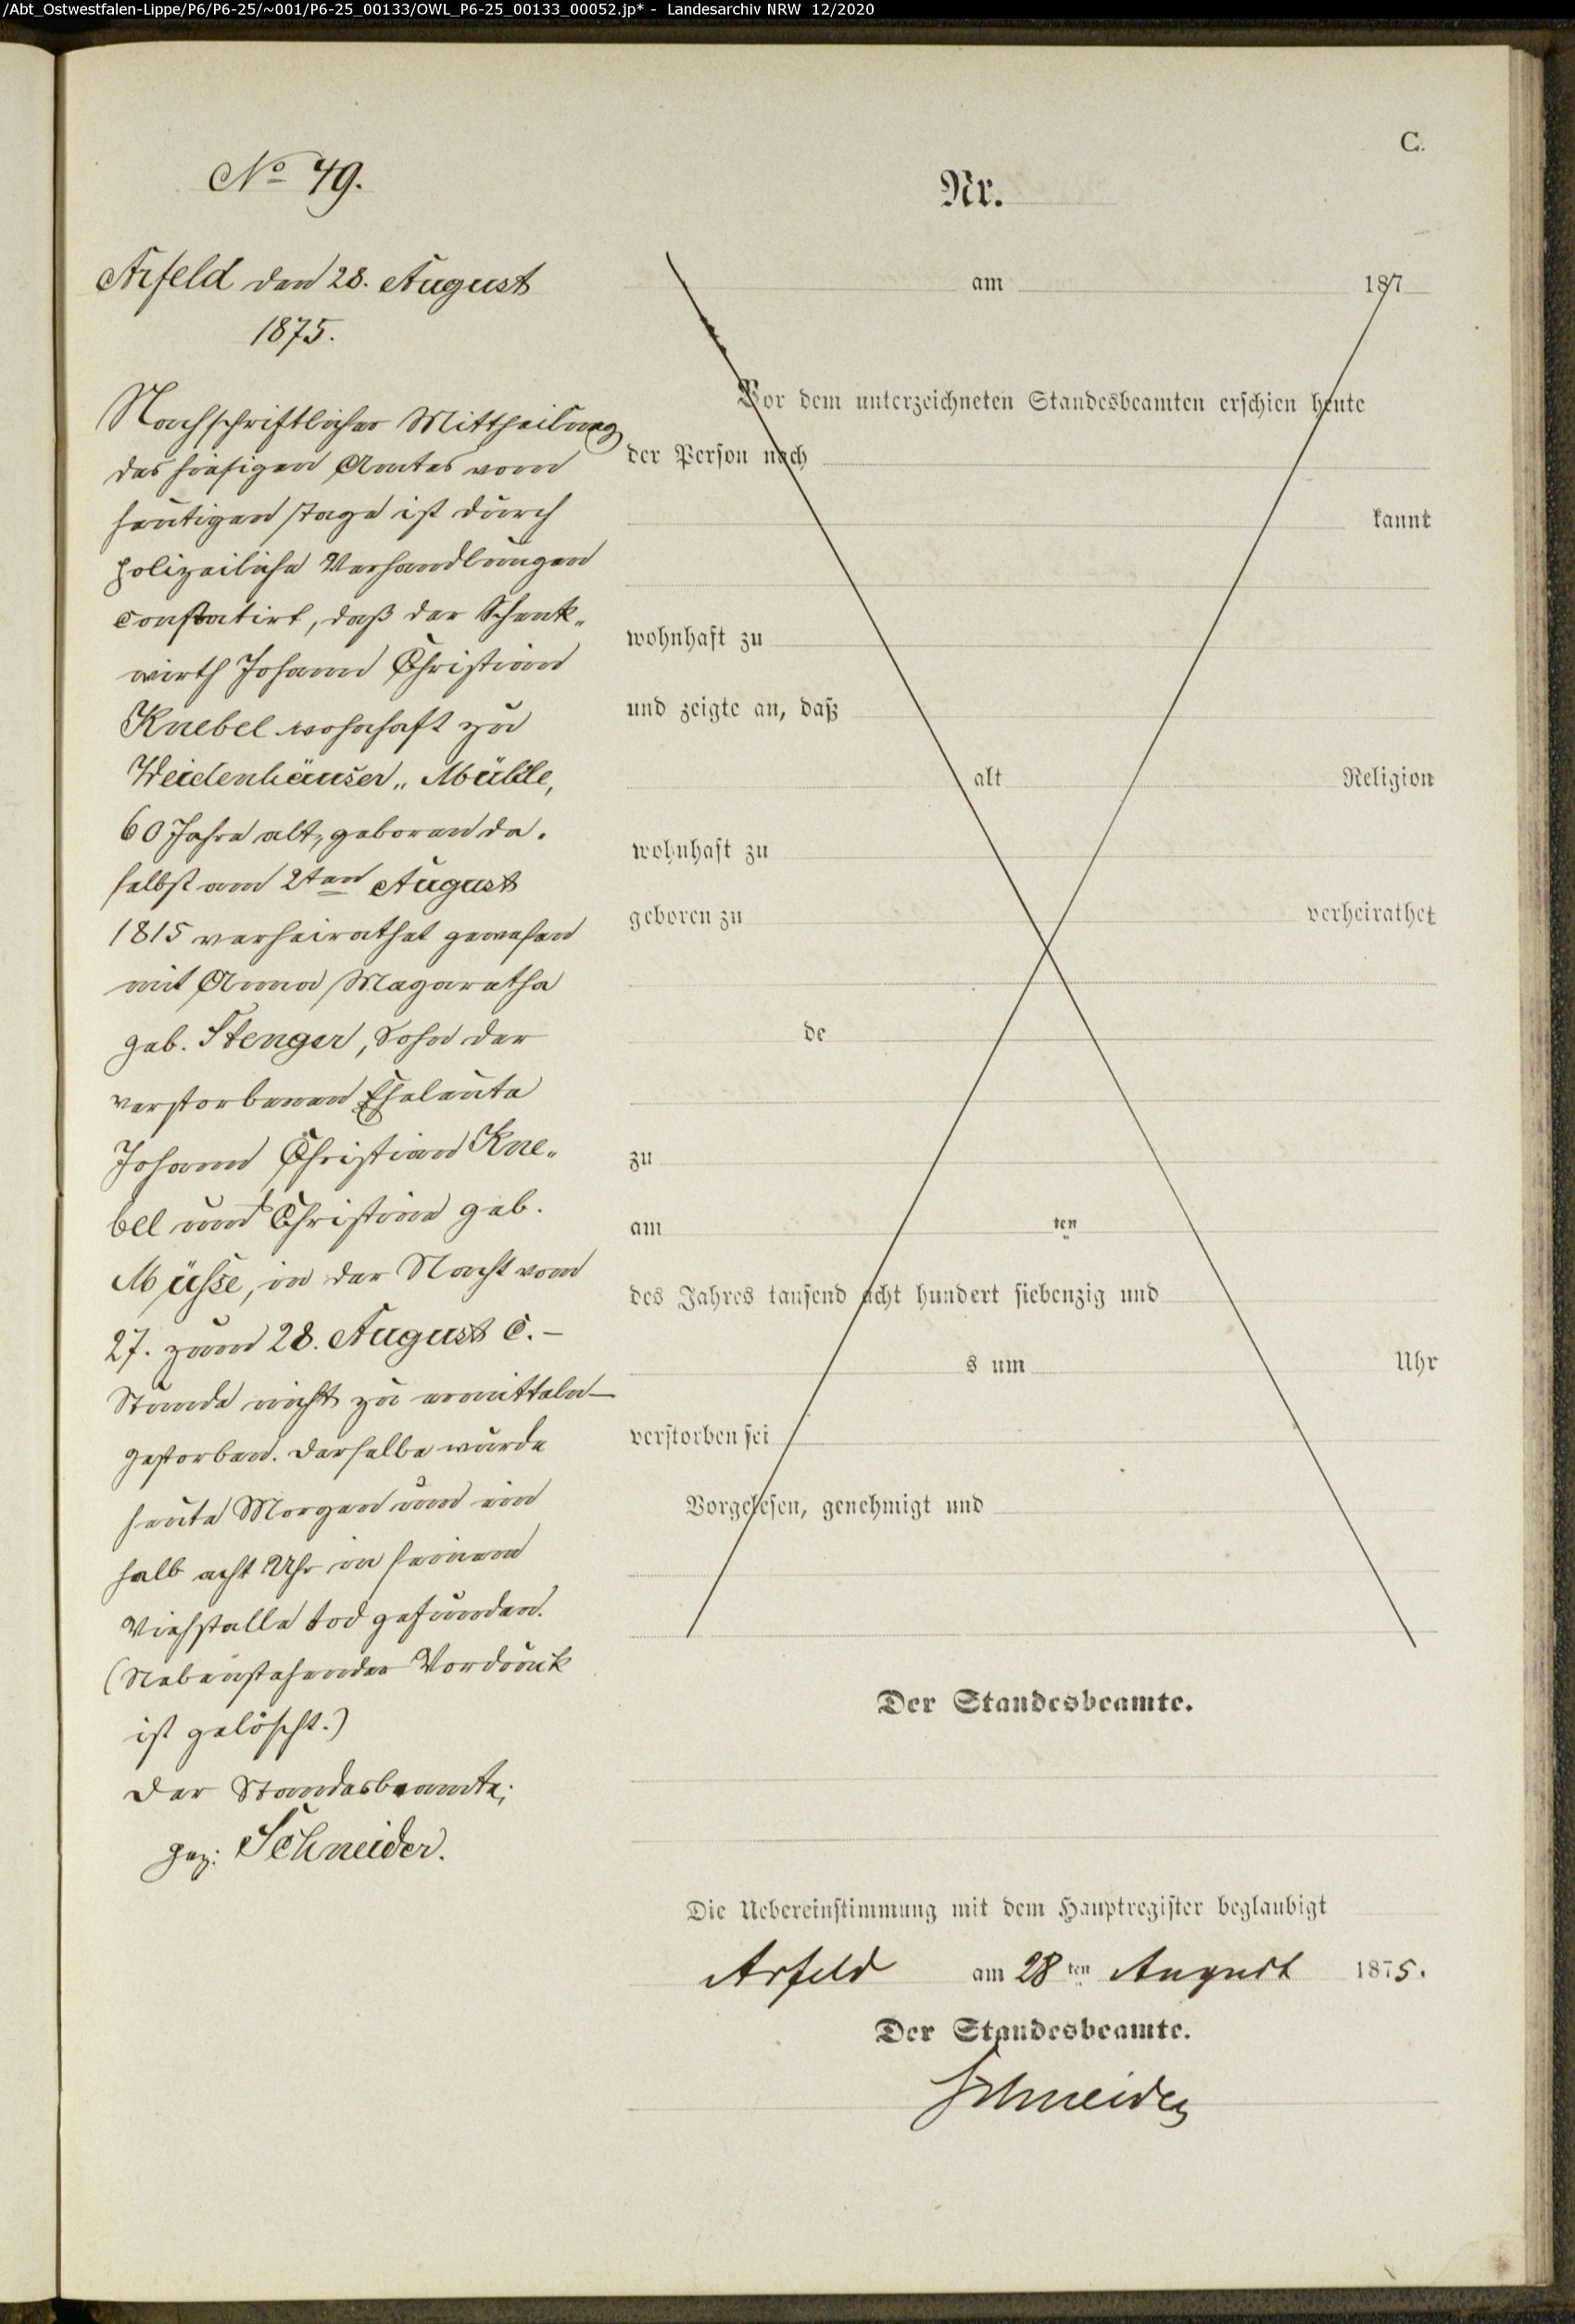 /Abt_Ostwestfalen-Lippe/P6/P6-25/~001/P6-25_00133/OWL_P6-25_00133_00052.jp* - Landesarchiv NRW 12/2020
No 49.
Arfeld den 28. August
1875.
Nachschriftlicher Mittheilung
des hiesigen Amtes vom
heutigen Tage ist durch
polizeiliche Verhandlungen
constatirt, daß der Schenk„
wirth Johann Christian
Knebel wohnhaft zu
Weidenhäuser„ Mühle,
60 Jahre alt, geboren da„
selbst am 2ten August
1815 verheirathet gewesen
mit Anna Magaretha
geb. Stenger, Sohn der
verstorbenen Eheleute
Johann Christian Kne„
bel und Christine geb.
Müsse, in der Nacht vom
27. zum 28. August c. –
Stunde nicht zu ermitteln –
gestorben. Derselbe wurde
heute Morgen um ein
halb acht Uhr in seinem
Viehstalle tod gefunden.
(Nebenstehender Vordruck
ist gelöscht.)
Der Standesbeamte;
gez: Schneider.
C.
Nr.
am 187
Vor dem unterzeichneten Standesbeamten erschien heute
der Person nach
kannt
wohnhaft zu
und zeigte an, daß
alt Religion
wohnhaft zu
geboren zu verheirathet
de
zu
am ten
des Jahres tausend acht hundert siebenzig und
s um Uhr
verstorben sei
Vorgelesen, genehmigt und
Der Standesbeamte.
Die Uebereinstimmung mit dem Hauptregister beglaubigt
Arfeld am 28 ten August 1875.
Der Standesbeamte.
Schneider